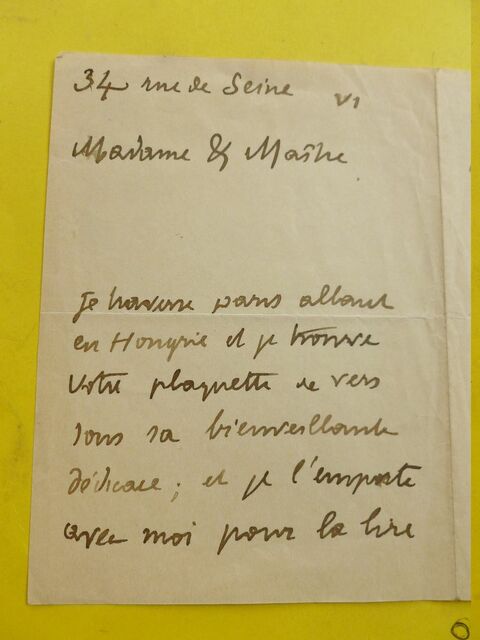 34 rue de Seine VI
Madame & Maître
Je traverse paris allant
en Hongrie et je trouve
votre plaquette de vers
sous sa bienveillante
dédicace ; et je l'emporte
avec moi pour la lire